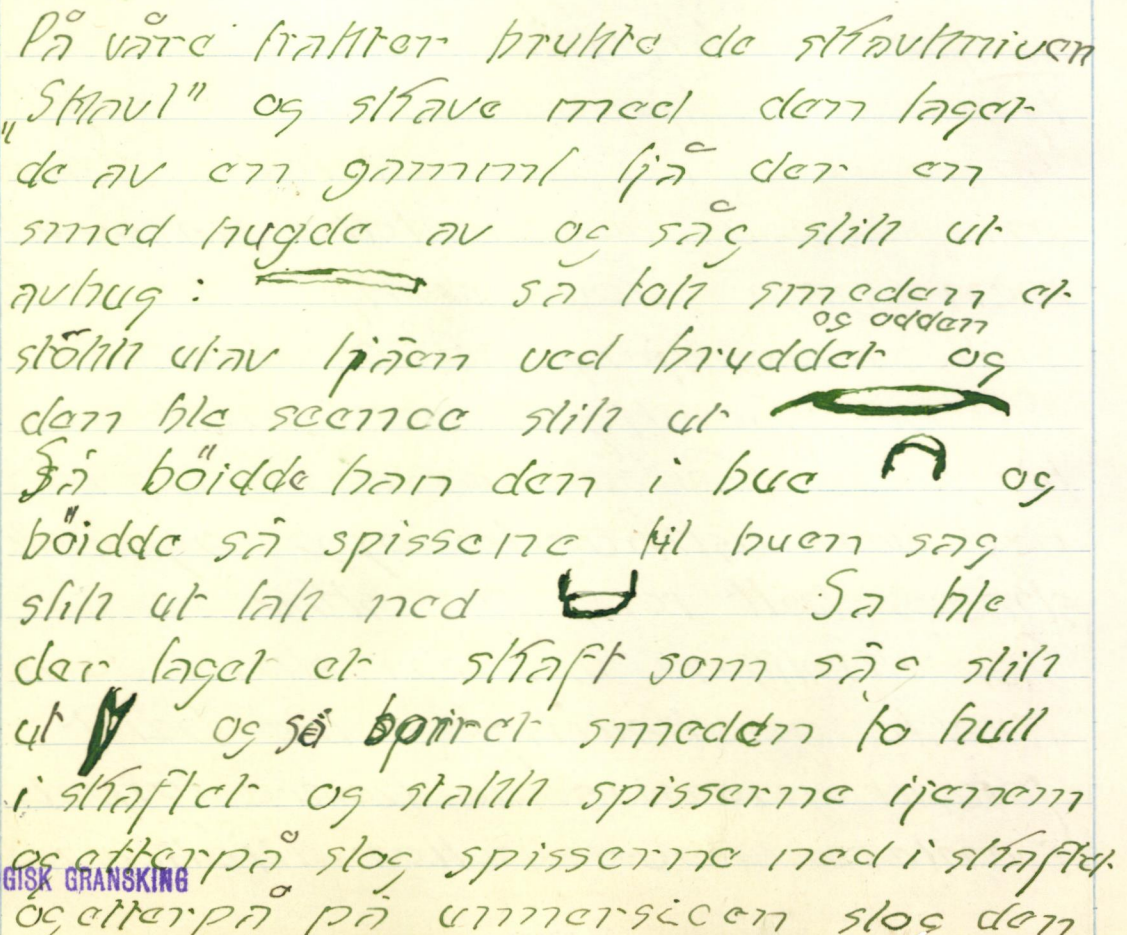 På våre trakter brukte de skavkniven
„Skavl" og skave med den laget
de av en gamml ljå der en
smed hugde av og såg slik ut
avhug : så tok smeden et
og odden
stökk utav ljåen ved bruddet og
den ble seende slik ut
Så böidde han den i bue og
böidde så spissene til buen sag
slik ut lak ned Så ble
der laget et skaft som såg slik
ut og så borret smeden to hull
i skaftet og stakk spisserne ijenem
og etterpå slog spisserne ned i skaftet
GISK GRANSKING
og etterpå på unnersiden slog den